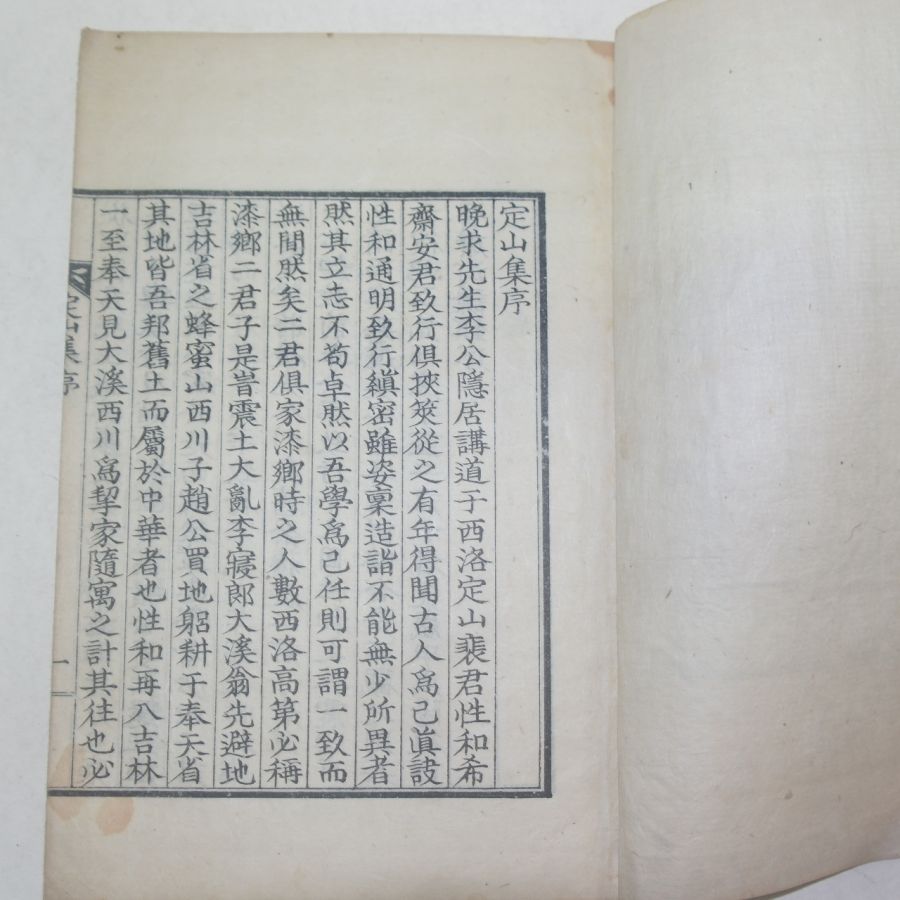 定山集序
晩求先生李公隱居講道于西洛定山裵君性和希
齋安君致行俱挾筴從之有年得聞古人爲己眞詖
性和通明致行縝密雖姿稟造詣不能無少所異者
然其立志不苟卓然以吾學爲己任則可謂一致而
無間然矣二君俱家漆鄕時之人數西洛高第必稱
漆鄕二君子是時震土大亂李寢郎大溪翁先避地
吉林省之蜂蜜山西川子趙公買地躬耕于奉天省
其地皆吾邦舊土而屬於中華者也性和再入吉林
一至奉天見大溪西川爲挈家隨寓之計其往也必
定山集序
一